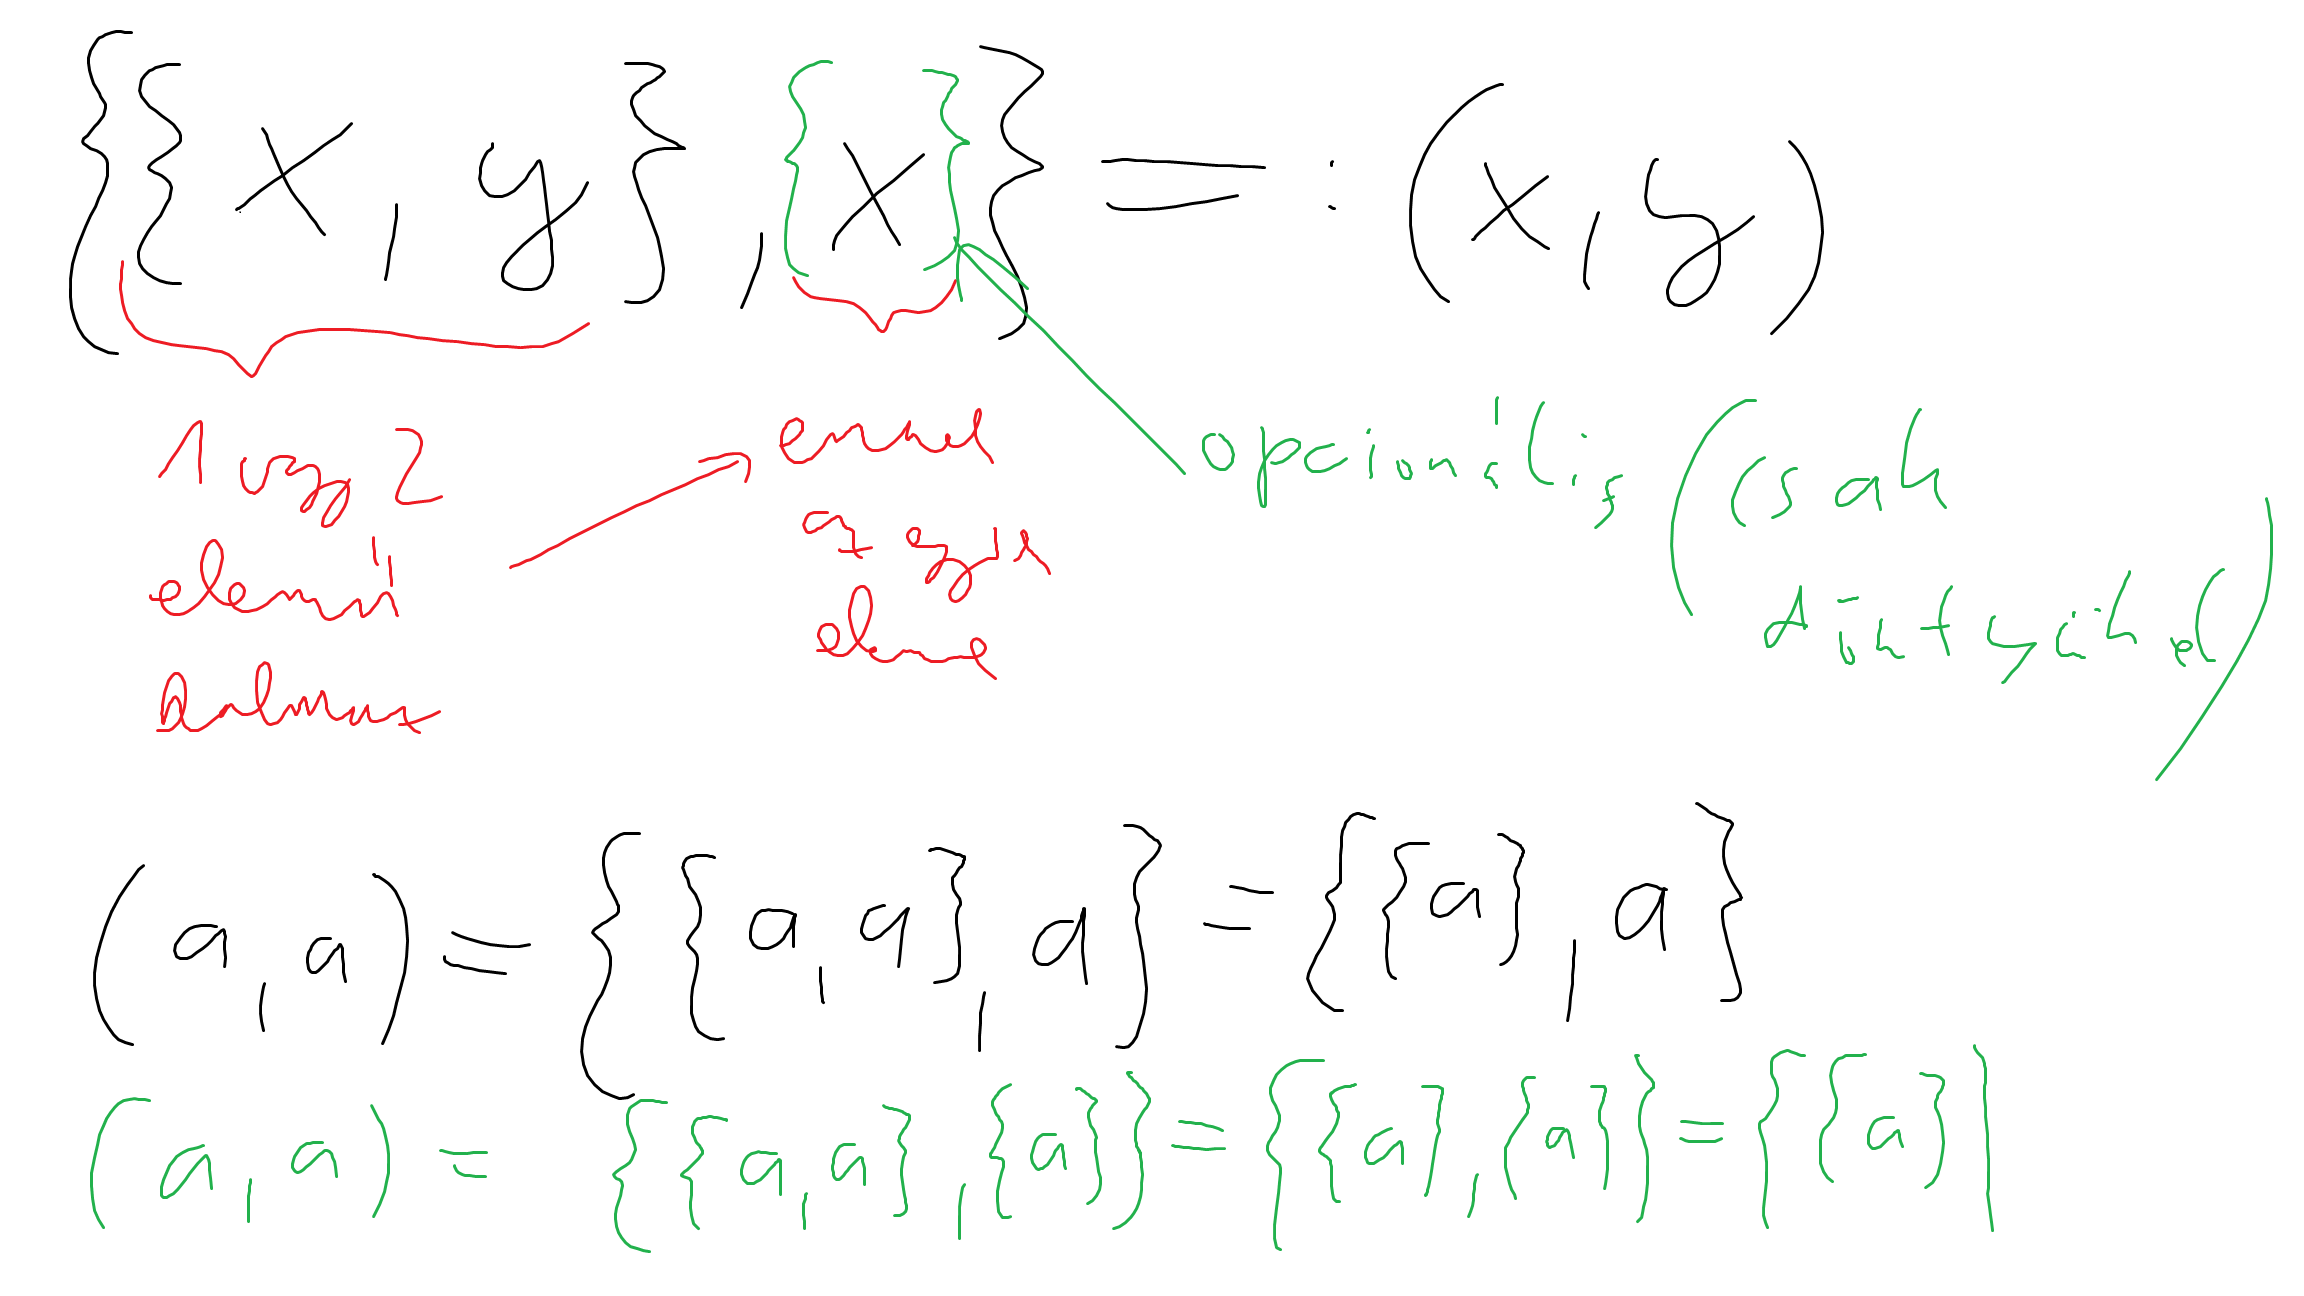 {{x, y}, {x}} =: (x, y)
1 vagy 2
elemű
halmaz
ennek
az egyik
eleme
opcionális (csak
döntsük el)
(a, a) = {{a, a}, a} = {{a}, a}
(a, a) = {{a, a}, {a}} = {{a}, {a}} = {{a}}